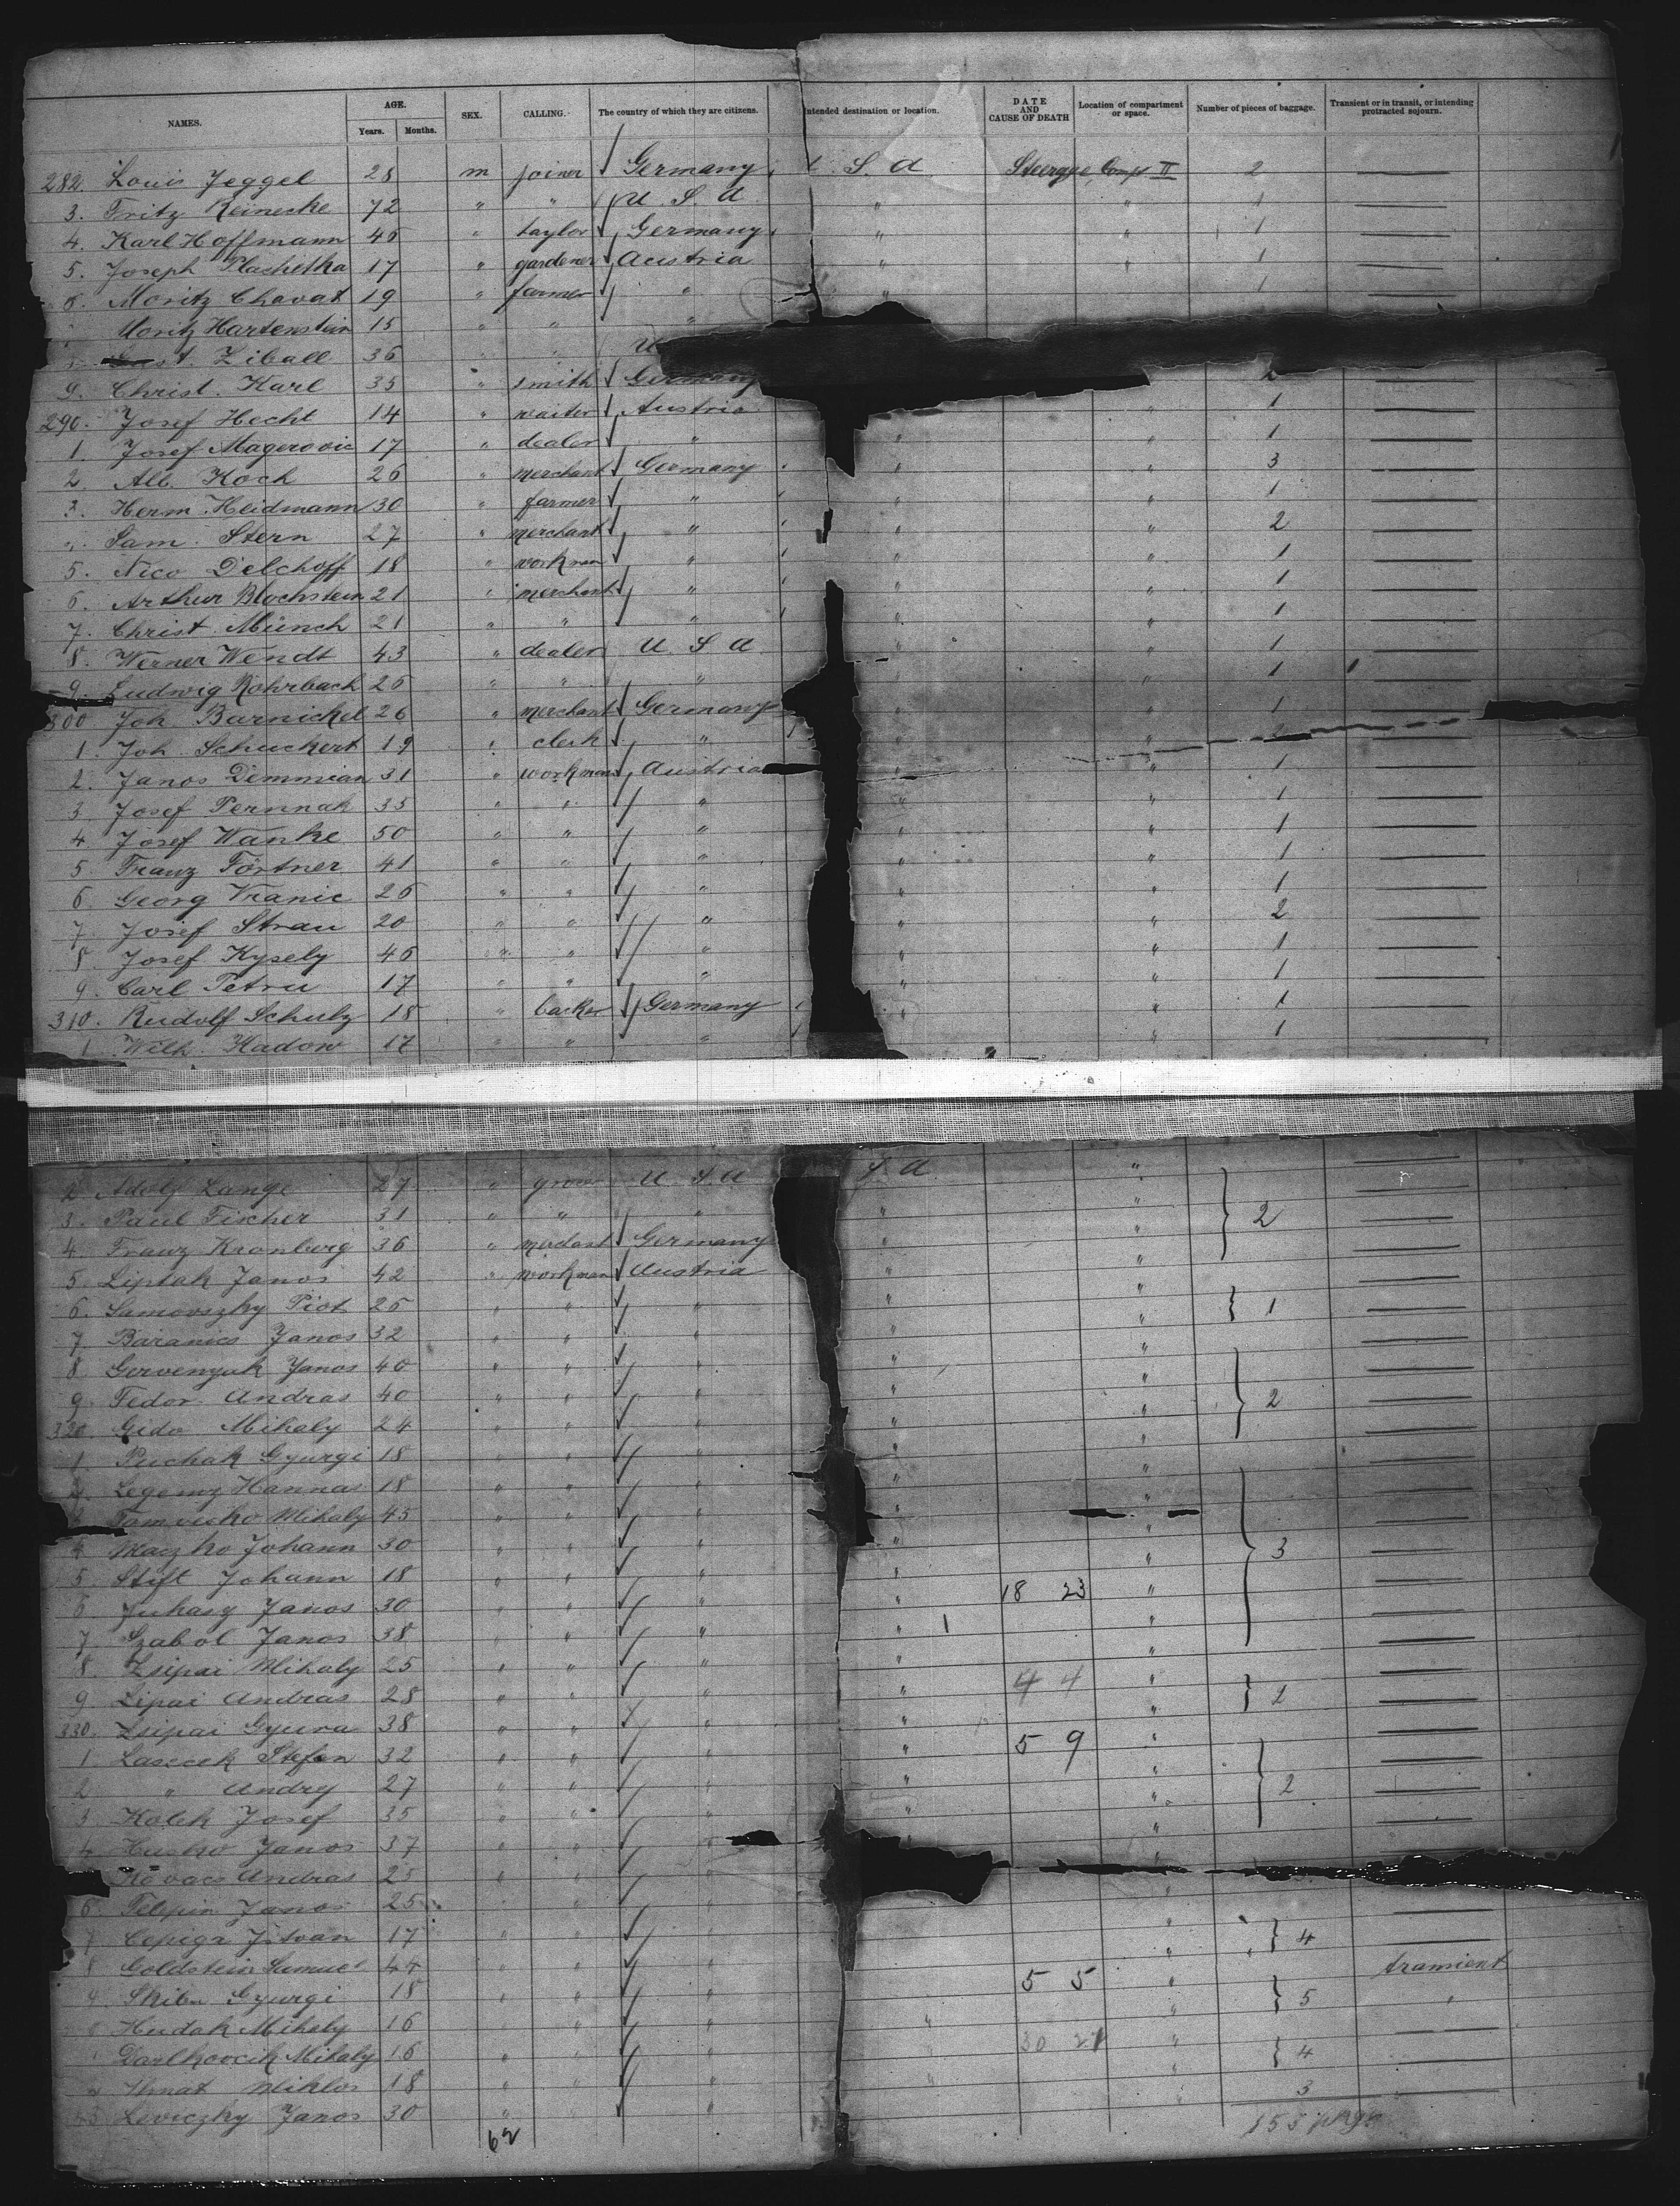 NAMES. AGE. Years. Months. SEX. CALLING. The country of which they are citizens. Intended destination or location. DATE AND CAUSE OF DEATH Location of compartment or space. Number of pieces of baggage. Transient or in transit, or intending protracted sojourn.
282. Louis Jeggel 28 m joiner Germany S. A Steerage Comp II 2
3. Fritz Reinecke 72 " " U. S. A " " 1
4. Karl Hoffmann 46 " taylor Germany " " 1
5. Joseph Plachetka 17 " gardener Austria " " 1
6. Moritz Chavat 19 " farmer " " 1
Moritz Hartenstein 15 " " "
Ziball 36 " " U
9. Christ. Karl 35 " smith Germany 2
290. Josef Hecht 14 " waiter Austria " 1
1. Josef Magerovic 17 " dealer " " " 1
2. Alb. Koch 26 " merchant Germany " " 3
3. Herm. Heidmann 30 " farmer " " " 1
Sam. Stern 27 " merchant " " " 2
5. Nico Delchoff 18 " workman " " " 1
6. Arthur Blochstein 21 " merchant " " " 1
7. Christ. Münch 21 " " " " " 1
8. Werner Wendt 43 " dealer U. S. A " " 1
9. Ludwig Rohrbach 26 " " " " " 1
300 Joh Barnickel 26 " merchant Germany " " 1
1. Joh. Schuckert 19 " clerk " " "
2. Janos Demmian 31 " workman Austria " 1
3. Josef Pernnak 35 " " " " " 1
4 Josef Wanke 50 " " " " " 1
5 Franz Förtner 41 " " " " " 1
6. Georg Vranic 26 " " " " " 1
7. Josef Strau 20 " " " " " 2
8. Josef Kysely 46 " " " " " 1
9. Carl Petru 17 " " " " " 1
310. Rudolf Schulz 18 " backer Germany " " 1
1 Wilh. Kadow 17 " " " " " 1
2 Adolf Lange 27 " grocer U. S. A S. A "
3. Paul Fischer 31 " " " " " 2
4. Franz Kronberg 36 " Germany " "
5. Liptak Janos 42 " workman Austria " "
6. Samovszky Piot 26 " " " " " 1
7 Baranics Janos 32 " " " " "
8 Gervenyak Janos 40 " " " " "
9. Fedor Andras 40 " " " " " 2
320. Gido Mihaly 24 " " " " "
1. Puchak Gyurgi 18 " " " " "
2. Hannas 18 " " " " "
Mihaly 45 " " " " "
4 Maczko Johann 30 " " " " " 3
5. Stift Johann 18 " " " " 18 23 "
6 Juhasz Janos 30 " " " " 1 "
7. Szabol Janos 38 " " " " "
8. Zsipai Mihaly 25 " " " " 4 4 "
9. Lipai Andras 28 " " " " "
330. Zsipai Gyura 38 " " " " 5 9 "
1 Stefan 32 " " " " "
2 " Andrg 27 " " " " " 2
3 Kolek Josef 35 " " " " "
4. Husko Janos 37 " " " "
Kovacs Andras 25 " " "
6. Janos 25 " " "
7 Istvan 17 " " " " 4
8 Goldstein Samuel 44 " " " 5 5 " transient
9 Gyurgi 18 " " " " 5 "
Hudak Mihaly 16 " " " " 30 21 "
Mihaly 16 " " " " " 4
Miklos 18 " " " " 3
Leviczky Janos 30 " " "
62
155